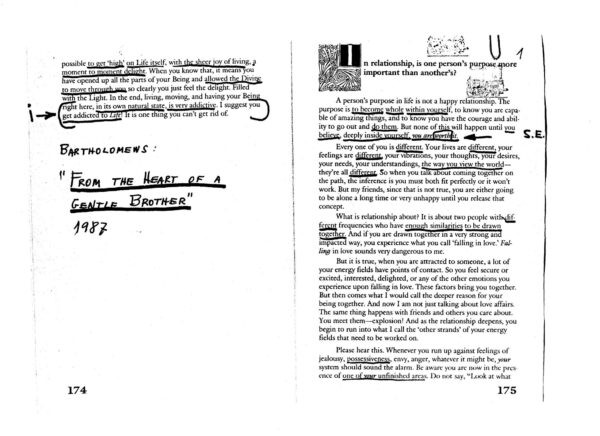 possible to get 'high' on Life itself, with the sheer joy of living, a
moment to moment delight. When you know that, it means you
have opened up all the parts of your Being and allowed the Divine
to move through you so clearly you just feel the delight. Filled
with the Light. In the end, living, moving, and having your Being
right here, in its own natural state, is very addictive. I suggest you
get addicted to Life! It is one thing you can't get rid of.
i
BARTHOLOMEWS:
"FROM THE HEART OF A
GENTLE BROTHER"
1987
174
U 1
In relationship, is one person's purpose more
important than another's?
A person's purpose in life is not a happy relationship. The
purpose is to become whole within yourself, to know you are capa-
ble of amazing things, and to know you have the courage and abil-
ity to go out and do them. But none of this will happen until you
believe, deeply inside yourself, you are worth it.
S.E.
Every one of you is different. Your lives are different, your
feelings are different, your vibrations, your thoughts, your desires,
your needs, your understandings, the way you view the world—
they're all different. So when you talk about coming together on
the path, the inference is you must both fit perfectly or it won't
work. But my friends, since that is not true, you are either going
to be alone a long time or very unhappy until you release that
concept.
What is relationship about? It is about two people with dif-
ferent frequencies who have enough similarities to be drawn
together. And if you are drawn together in a very strong and
impacted way, you experience what you call 'falling in love.' Fal-
ling in love sounds very dangerous to me.
But it is true, when you are attracted to someone, a lot of
your energy fields have points of contact. So you feel secure or
excited, interested, delighted, or any of the other emotions you
experience upon falling in love. These factors bring you together.
But then comes what I would call the deeper reason for your
being together. And now I am not just talking about love affairs.
The same thing happens with friends and others you care about.
You meet them—explosion! And as the relationship deepens, you
begin to run into what I call the 'other strands' of your energy
fields that need to be worked on.
Please hear this. Whenever you run up against feelings of
jealousy, possessiveness, envy, anger, whatever it might be, your
system should sound the alarm. Be aware you are now in the pres-
ence of one of your unfinished areas. Do not say, "Look at what
175